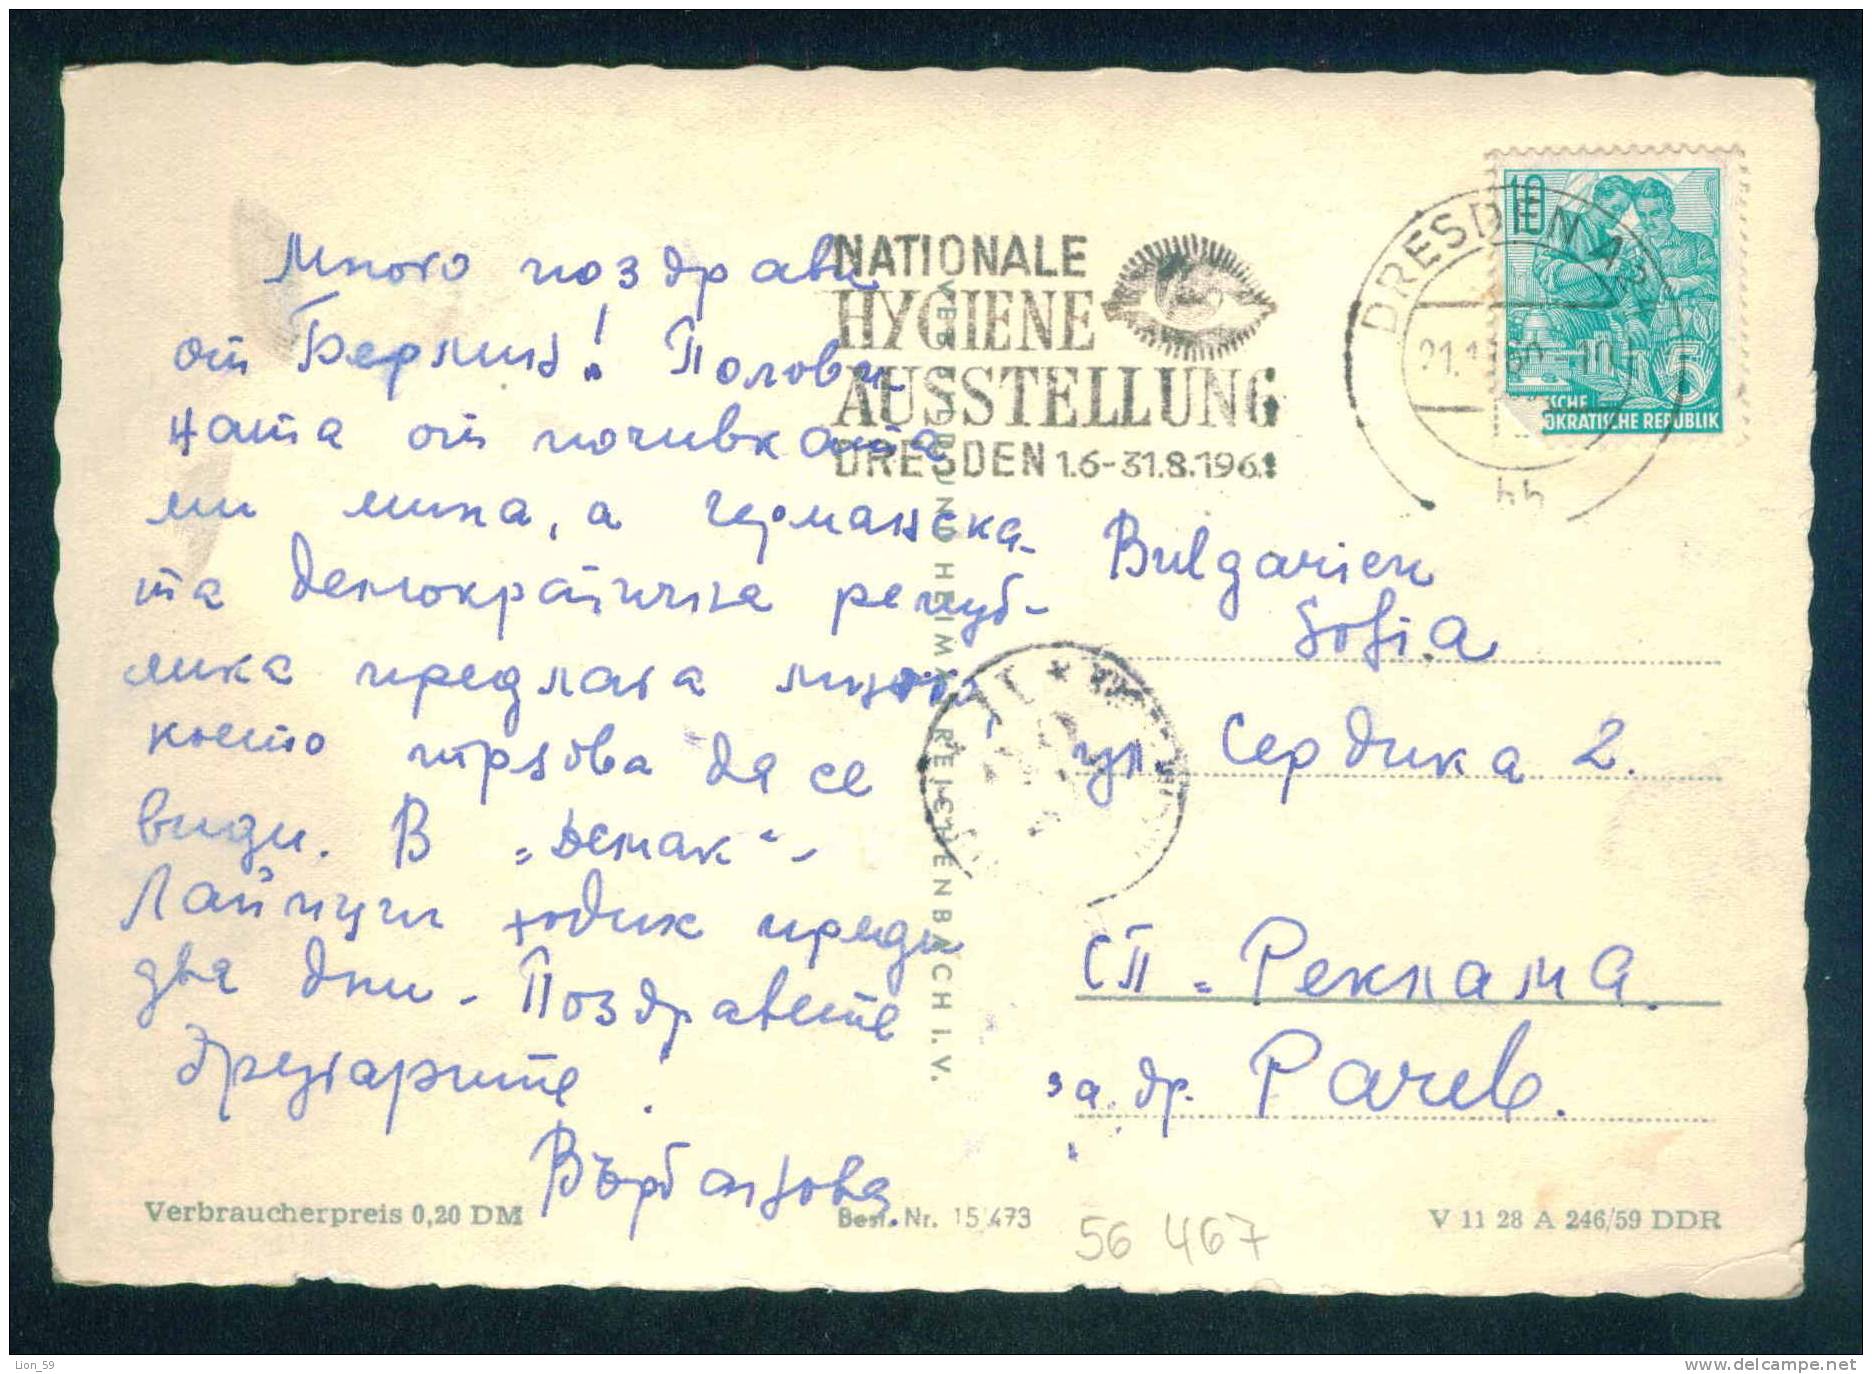 Много поздрави
от Берлин! Полови-
ната от почивката
ми мина, а германска-
та демократична репуб-
лика предлага много,
което трябва да се
види. В „Демак“ -
Лайпциг ходих преди
два дни. Поздравете
другарите.
Върбанова.
NATIONALE
HYGIENE
AUSSTELLUNG
DRESDEN 1.6-31.8.1961
DRESDEN A
10
5
OKRATISCHE REPUBLIK
hh
Bulgarien
Sofia
ул. Сердика 2.
СП - Реклама.
за др. Рачев.
REICHENBACH I. V.
Verbraucherpreis 0,20 DM
Best. Nr. 15/473
56 467
V 11 28 A 246/59 DDR
Lion_59
www.delcampe.net